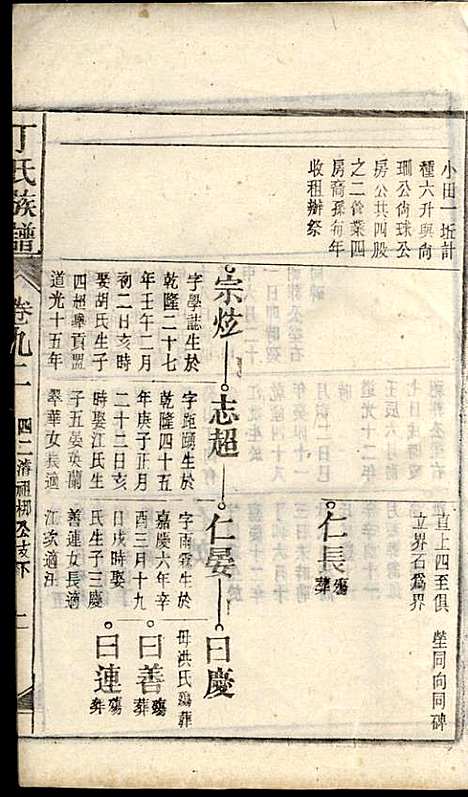 小田一坵計
種六升與尙
珊公尙球公
房公共四股
之二管業四
房裔孫每年
收租辦祭
直上四至俱
立界石為界
塋同向同碑
仁長
殤
葬
宗炫
志超
仁晏
曰慶
字學誌生於
乾隆二十七
年壬午二月
初二日亥時
娶胡氏生子
道光十五年
字距頤生於
乾隆四十五
年庚子正月
二十二日亥
時娶江氏生
子五晏英蘭
翠華女長適
字雨霖生於
嘉慶六年辛
酉三月十九
日戌時娶
氏生子三慶
善連女長適
江次適汪
母洪氏殤葬
曰善
殤
葬
曰連
殤
葬
丁氏族譜
卷九二